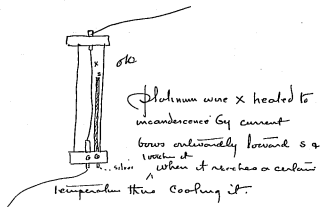 x
ok
s
platinum wire x heated to
incandescence by current
bows outwardly toward s &
touches it
when it reaches a certain
G G
temperature thus cooling it.